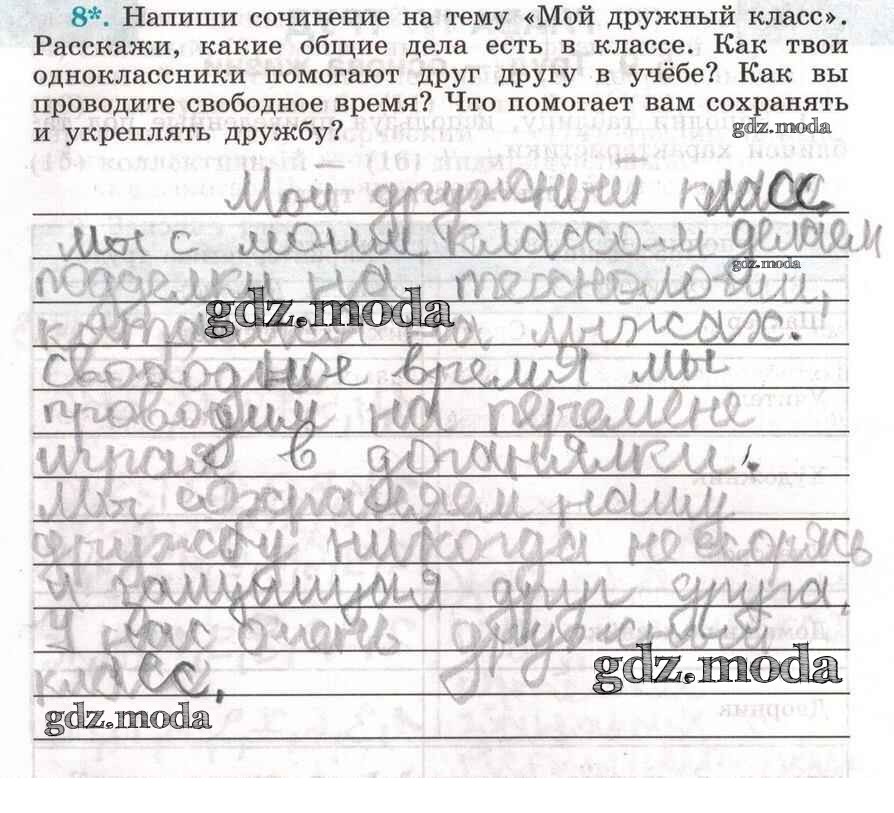 8*. Напиши сочинение на тему «Мой дружный класс».
Расскажи, какие общие дела есть в классе. Как твои
одноклассники помогают друг другу в учёбе? Как вы
проводите свободное время? Что помогает вам сохранять
и укреплять дружбу?
gdz.moda
Мой дружный класс
мы с моим классом делаем
gdz.moda
подделки на технологии,
gdz.moda
катаемся на лыжах.
Свободное время мы
проводим на перемене
играя в доганялки.
Мы сохраняем нашу
дружбу никогда не ссорясь
и защищая друг друга,
У нас очень дружный
gdz.moda
класс,
gdz.moda